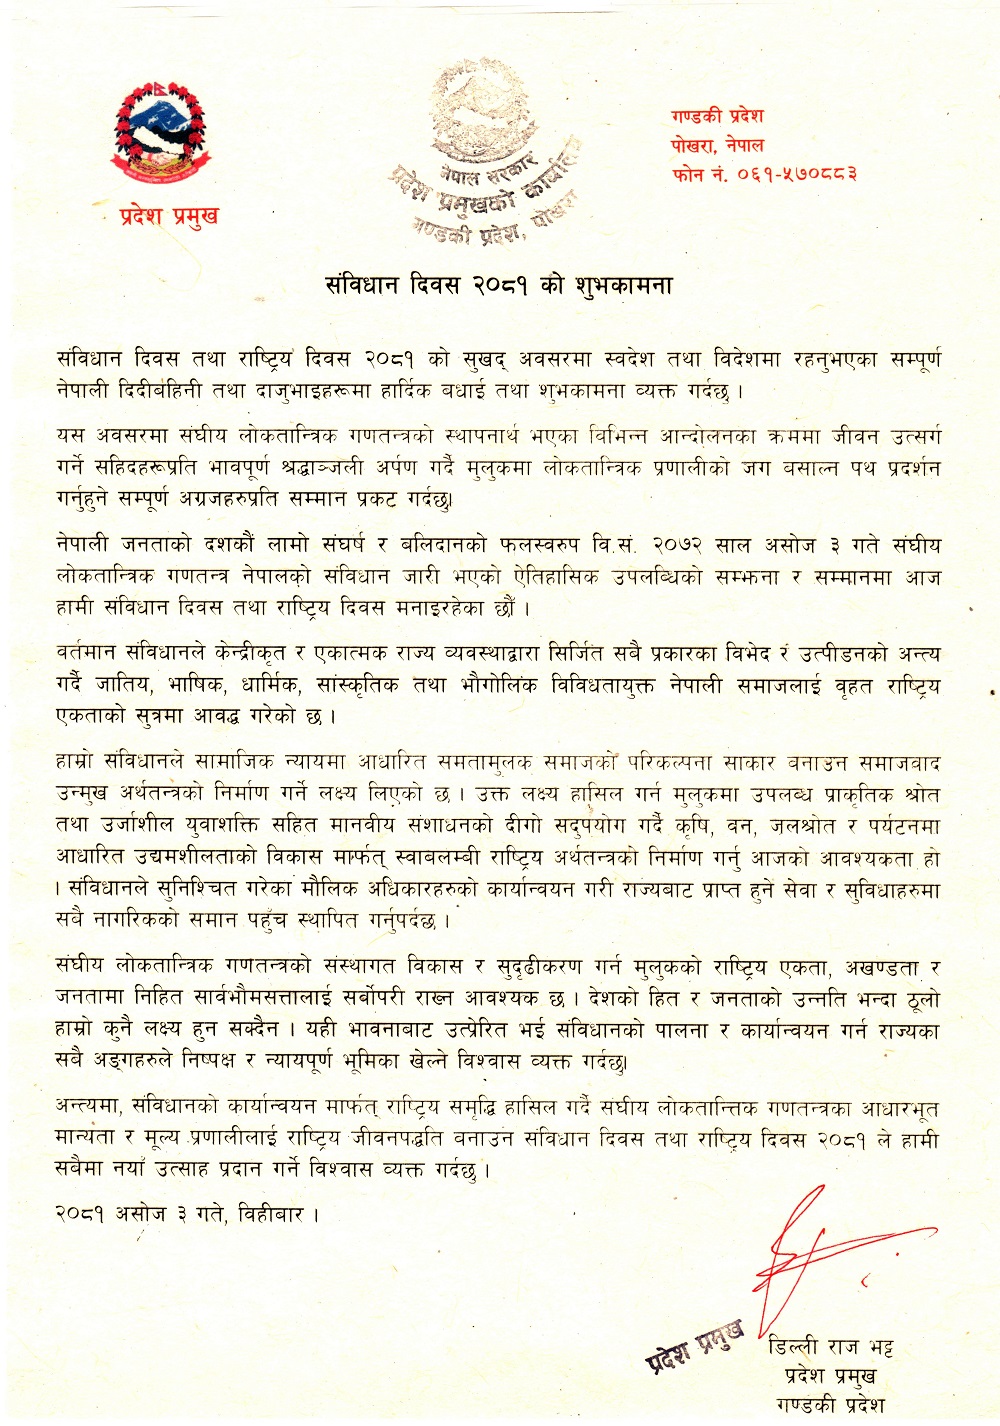 प्रदेश प्रमुख
नेपाल सरकार
प्रदेश प्रमुखको कार्यालय
गण्डकी प्रदेश, पोखरा
गण्डकी प्रदेश
पोखरा, नेपाल
फोन नं. ०६१-५७०८८३
संविधान दिवस २०८१ को शुभकामना
संविधान दिवस तथा राष्ट्रिय दिवस २०८१ को सुखद् अवसरमा स्वदेश तथा विदेशमा रहनुभएका सम्पूर्ण
नेपाली दिदीबहिनी तथा दाजुभाइहरूमा हार्दिक बधाई तथा शुभकामना व्यक्त गर्दछु ।
यस अवसरमा संघीय लोकतान्त्रिक गणतन्त्रको स्थापनार्थ भएका विभिन्न आन्दोलनका क्रममा जीवन उत्सर्ग
गर्ने सहिदहरूप्रति भावपूर्ण श्रद्धाञ्जली अर्पण गर्दै मुलुकमा लोकतान्त्रिक प्रणालीको जग बसाल्न पथ प्रदर्शन
गर्नुहुने सम्पूर्ण अग्रजहरुप्रति सम्मान प्रकट गर्दछु।
नेपाली जनताको दशकौं लामो संघर्ष र बलिदानको फलस्वरुप वि.सं. २०७२ साल असोज ३ गते संघीय
लोकतान्त्रिक गणतन्त्र नेपालको संविधान जारी भएको ऐतिहासिक उपलब्धिको सम्झना र सम्मानमा आज
हामी संविधान दिवस तथा राष्ट्रिय दिवस मनाइरहेका छौं ।
वर्तमान संविधानले केन्द्रीकृत र एकात्मक राज्य व्यवस्थाद्वारा सिर्जित सबै प्रकारका विभेद र उत्पीडनको अन्त्य
गर्दै जातिय, भाषिक, धार्मिक, सांस्कृतिक तथा भौगोलिक विविधतायुक्त नेपाली समाजलाई वृहत राष्ट्रिय
एकताको सुत्रमा आवद्ध गरेको छ ।
हाम्रो संविधानले सामाजिक न्यायमा आधारित समतामुलक समाजको परिकल्पना साकार बनाउन समाजवाद
उन्मुख अर्थतन्त्रको निर्माण गर्ने लक्ष्य लिएको छ । उक्त लक्ष्य हासिल गर्न मुलुकमा उपलब्ध प्राकृतिक श्रोत
तथा उर्जाशील युवाशक्ति सहित मानवीय संशाधनको दीगो सदुपयोग गर्दै कृषि, वन, जलश्रोत र पर्यटनमा
आधारित उद्यमशीलताको विकास मार्फत् स्वाबलम्बी राष्ट्रिय अर्थतन्त्रको निर्माण गर्नु आजको आवश्यकता हो
। संविधानले सुनिश्चित गरेका मौलिक अधिकारहरुको कार्यान्वयन गरी राज्यबाट प्राप्त हुने सेवा र सुविधाहरुमा
सबै नागरिकको समान पहुँच स्थापित गर्नुपर्दछ ।
संघीय लोकतान्त्रिक गणतन्त्रको संस्थागत विकास र सुदृढीकरण गर्न मुलुकको राष्ट्रिय एकता, अखण्डता र
जनतामा निहित सार्वभौमसत्तालाई सर्वोपरी राख्न आवश्यक छ । देशको हित र जनताको उन्नति भन्दा ठूलो
हाम्रो कुनै लक्ष्य हुन सक्दैन । यही भावनाबाट उत्प्रेरित भई संविधानको पालना र कार्यान्वयन गर्न राज्यका
सबै अङ्गहरुले निष्पक्ष र न्यायपूर्ण भूमिका खेल्ने विश्वास व्यक्त गर्दछु।
अन्त्यमा, संविधानको कार्यान्वयन मार्फत् राष्ट्रिय समृद्धि हासिल गर्दै संघीय लोकतान्त्तिक गणतन्त्रका आधारभूत
मान्यता र मूल्य प्रणालीलाई राष्ट्रिय जीवनपद्धति बनाउन संविधान दिवस तथा राष्ट्रिय दिवस २०८१ ले हामी
सबैमा नयाँ उत्साह प्रदान गर्ने विश्वास व्यक्त गर्दछु ।
२०८१ असोज ३ गते, विहीबार ।
प्रदेश प्रमुख
डिल्ली राज भट्ट
प्रदेश प्रमुख
गण्डकी प्रदेश